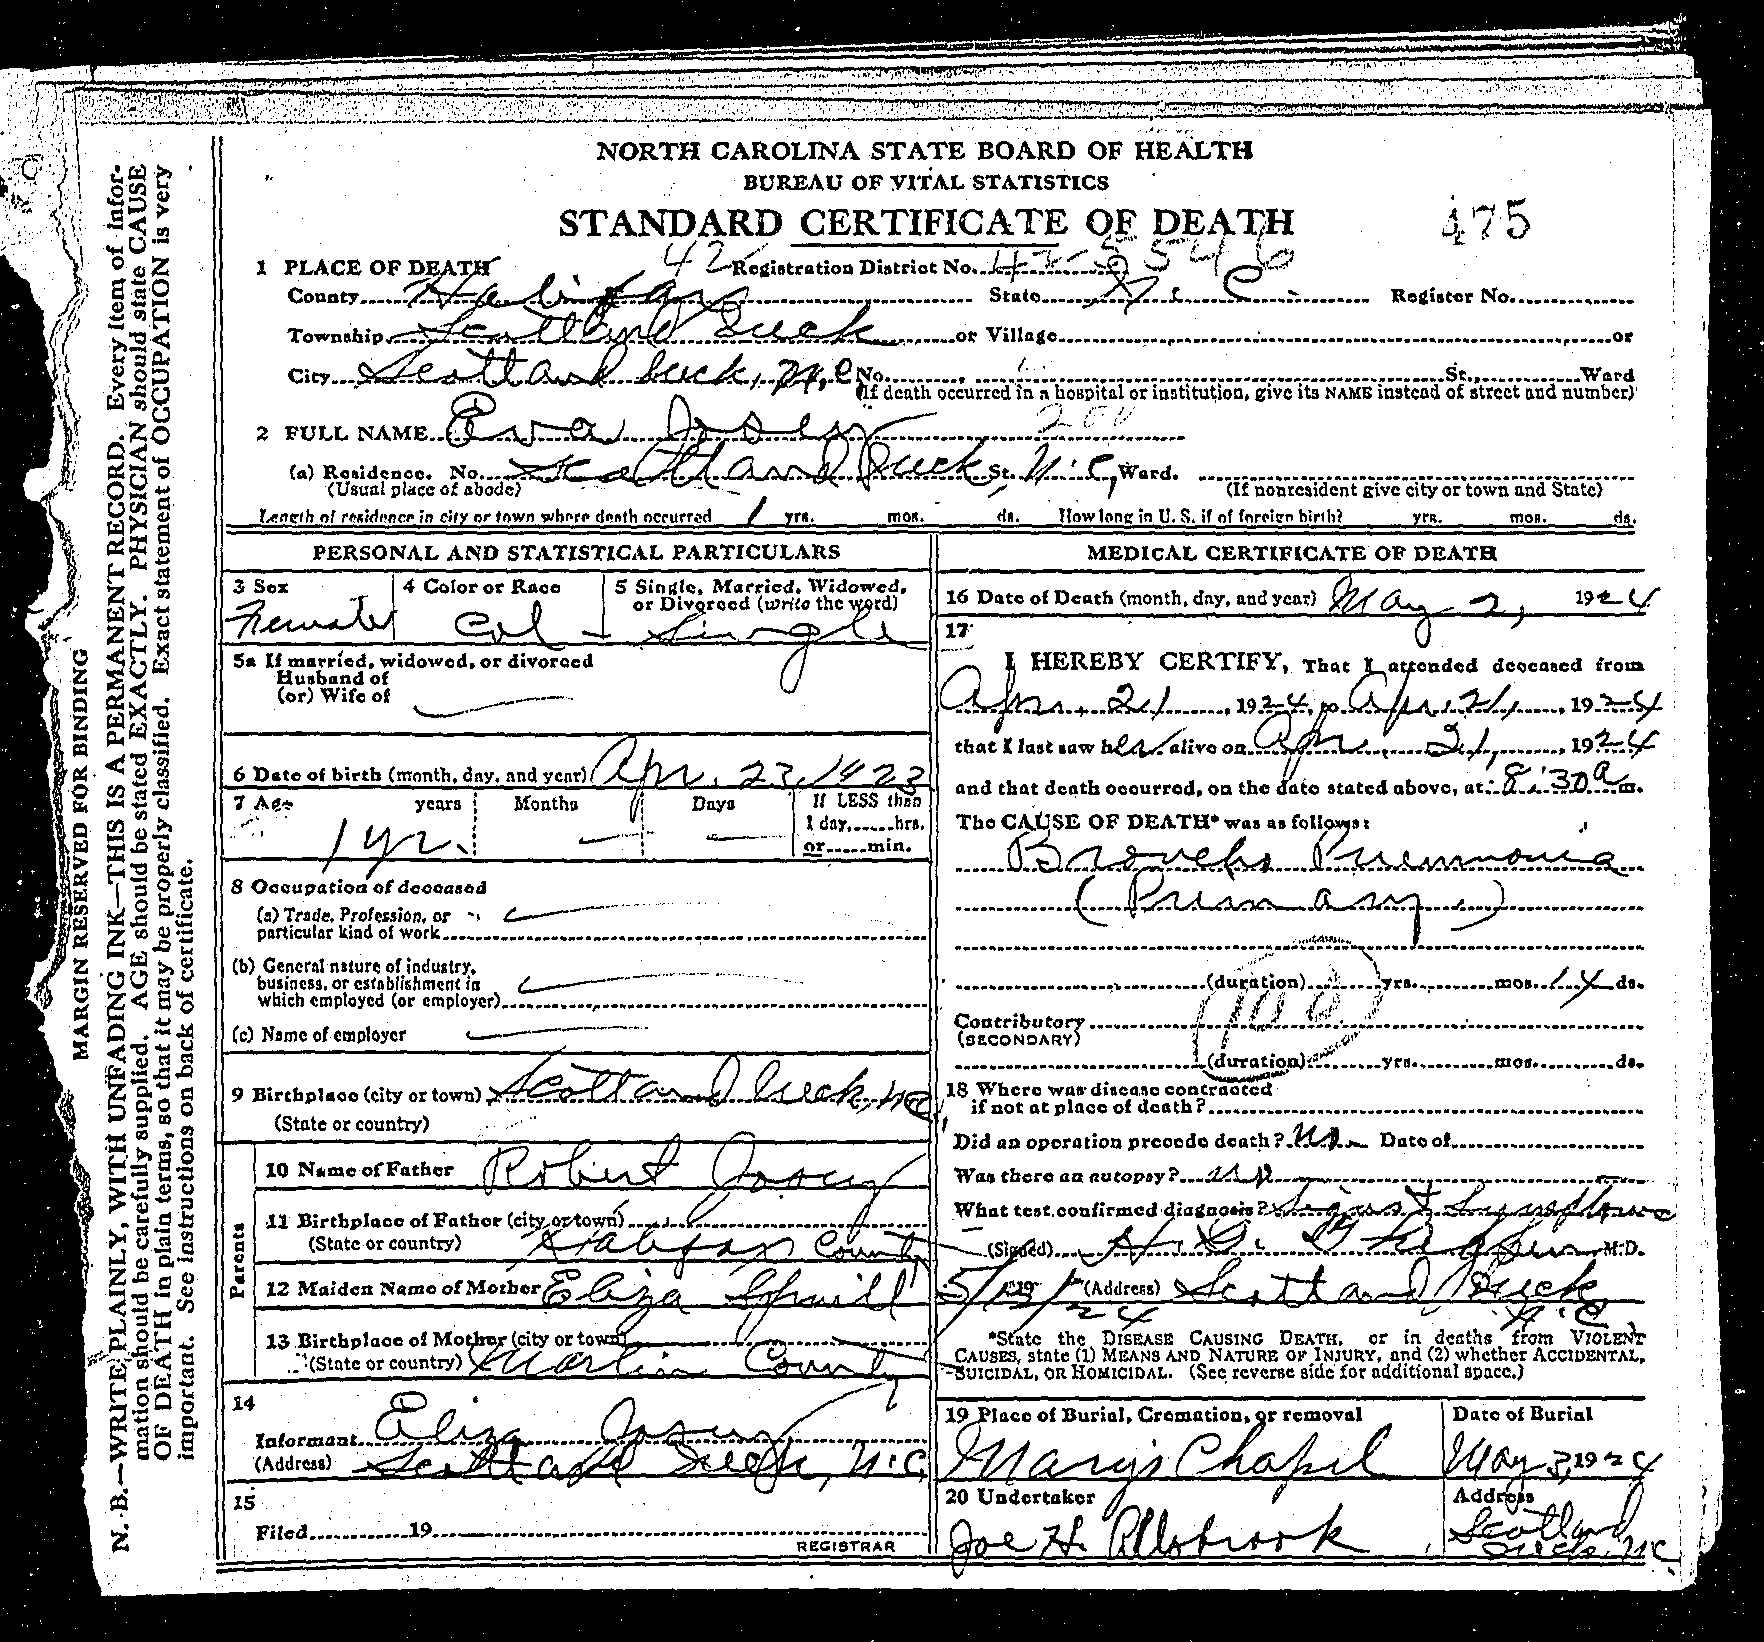 NORTH CAROLINA STATE BOARD OF HEALTH
BUREAU OF VITAL STATISTICS
STANDARD CERTIFICATE OF DEATH
475
1 PLACE OF DEATH 42 Registration District No. 42- 5546
County Halifax State N. C. Register No.
Township Scotland Neck or Village or
City Scotland Neck, N, C No. St., Ward
(If death occurred in a hospital or institution, give its NAME instead of street and number)
2 FULL NAME Eva Josey 200
(a) Residence. No. Scotland Neck St. N.C, Ward.
(Usual place of abode) (If nonresident give city or town and State)
Length of residence in city or town where death occurred 1 yrs. mos. ds. How long in U. S. if of foreign birth? yrs. mos. ds.
PERSONAL AND STATISTICAL PARTICULARS
3 Sex 4 Color or Race 5 Single, Married, Widowed,
or Divorced (write the word)
Female Col - Single
5a If married, widowed, or divorced
Husband of
(or) Wife of
6 Date of birth (month, day, and year) Apr. 23, 1923
7 Age years Months Days If LESS than
1 day, hrs.
1 yr. — — or min.
8 Occupation of deceased
(a) Trade, Profession, or
particular kind of work
(b) General nature of industry,
business, or establishment in
which employed (or employer)
(c) Name of employer
9 Birthplace (city or town) Scotland Neck, NC
(State or country)
Parents
10 Name of Father Robert Josey
11 Birthplace of Father (city or town)
(State or country) Halifax County
12 Maiden Name of Mother Eliza Spruill
13 Birthplace of Mother (city or town)
(State or country) Martin County
14
Informant Eliza Josey
(Address) Scotland Neck, N.C.
15
Filed 19
REGISTRAR
MEDICAL CERTIFICATE OF DEATH
16 Date of Death (month, day, and year) May 2, 1924
17
I HEREBY CERTIFY, That I attended deceased from
Apr. 21, 1924, to Apr. 21, 1924
that I last saw her alive on Apr. 21, 1924
and that death occurred, on the date stated above, at 8:30 a m.
The CAUSE OF DEATH* was as follows:
Broncho Pneumonia
(Primary.)
(duration) yrs. mos. 14 ds.
Contributory
(SECONDARY)
(duration) yrs. mos. ds.
18 Where was disease contracted
if not at place of death?
Did an operation precede death? No. Date of
Was there an autopsy? no
What test confirmed diagnosis? Signs & Symptoms
(Signed) M.D.
(Address) Scotland Neck
N.C
*State the DISEASE CAUSING DEATH, or in deaths from VIOLENT
CAUSES, state (1) MEANS AND NATURE OF INJURY, and (2) whether ACCIDENTAL,
SUICIDAL, OR HOMICIDAL. (See reverse side for additional space.)
19 Place of Burial, Cremation, or removal Date of Burial
Mary's Chapel May 3, 1924
20 Undertaker Address
Joe H. Allsbrook Scotland
Neck, NC
MARGIN RESERVED FOR BINDING
N. B.—WRITE PLAINLY, WITH UNFADING INK—THIS IS A PERMANENT RECORD. Every item of infor-
mation should be carefully supplied. AGE should be stated EXACTLY. PHYSICIAN should state CAUSE
OF DEATH in plain terms, so that it may be properly classified. Exact statement of OCCUPATION is very
important. See instructions on back of certificate.